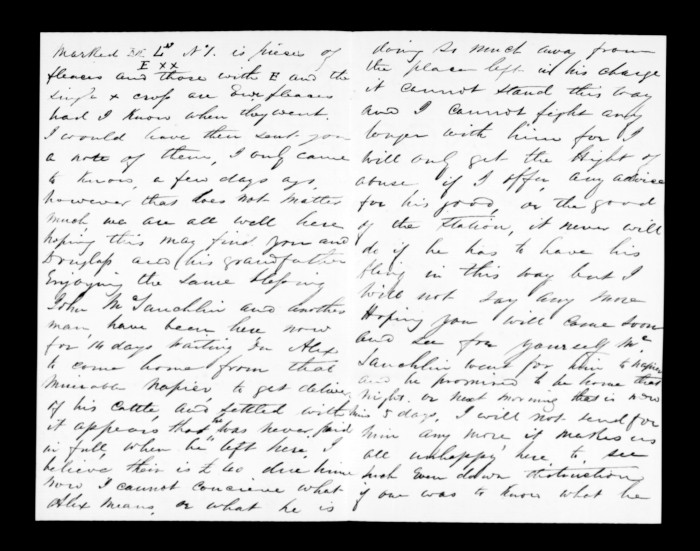 Marked L N 1. is pieses of
E XX
fleases and those with E and the
single x crop are Ewe fleases
had I Know when they went.
I would have then sent you
a note of them, I only came
to Know, a few days ago,
however that does not matter
much, we are all well here
hoping this may find you and
Douglass and his grandfather
Enjoying the same blessing
John McLauchlin and another
man, have been here now
for 14 days waiting for Alex
to come home from that
Miserable Napier, to get delivery
of his Cattle, and settled with him
it appears that he was never paid
in full, when he left here, I
believe their is £40 due hime
now I cannot concieve what
Alex means, or what he is
doing so much away from
the place left in his charge
it cannot stand this way
and I cannot fight any
longer with him for I
will only get the hight of
abuse, if I offer, any advise
for his good, or the good
of the station, it never will
do if he has to have his
fling in this way but I
will not say any more
Hoping you will come soon
and see for yourself, Mc
Lauchlin went for him to Napier
and he promised to be home that
night. or next morning that is now
5 days, I will not send for
him any more it makes us
all unhappy here to see
such Even down distruction
if one was to Know what he